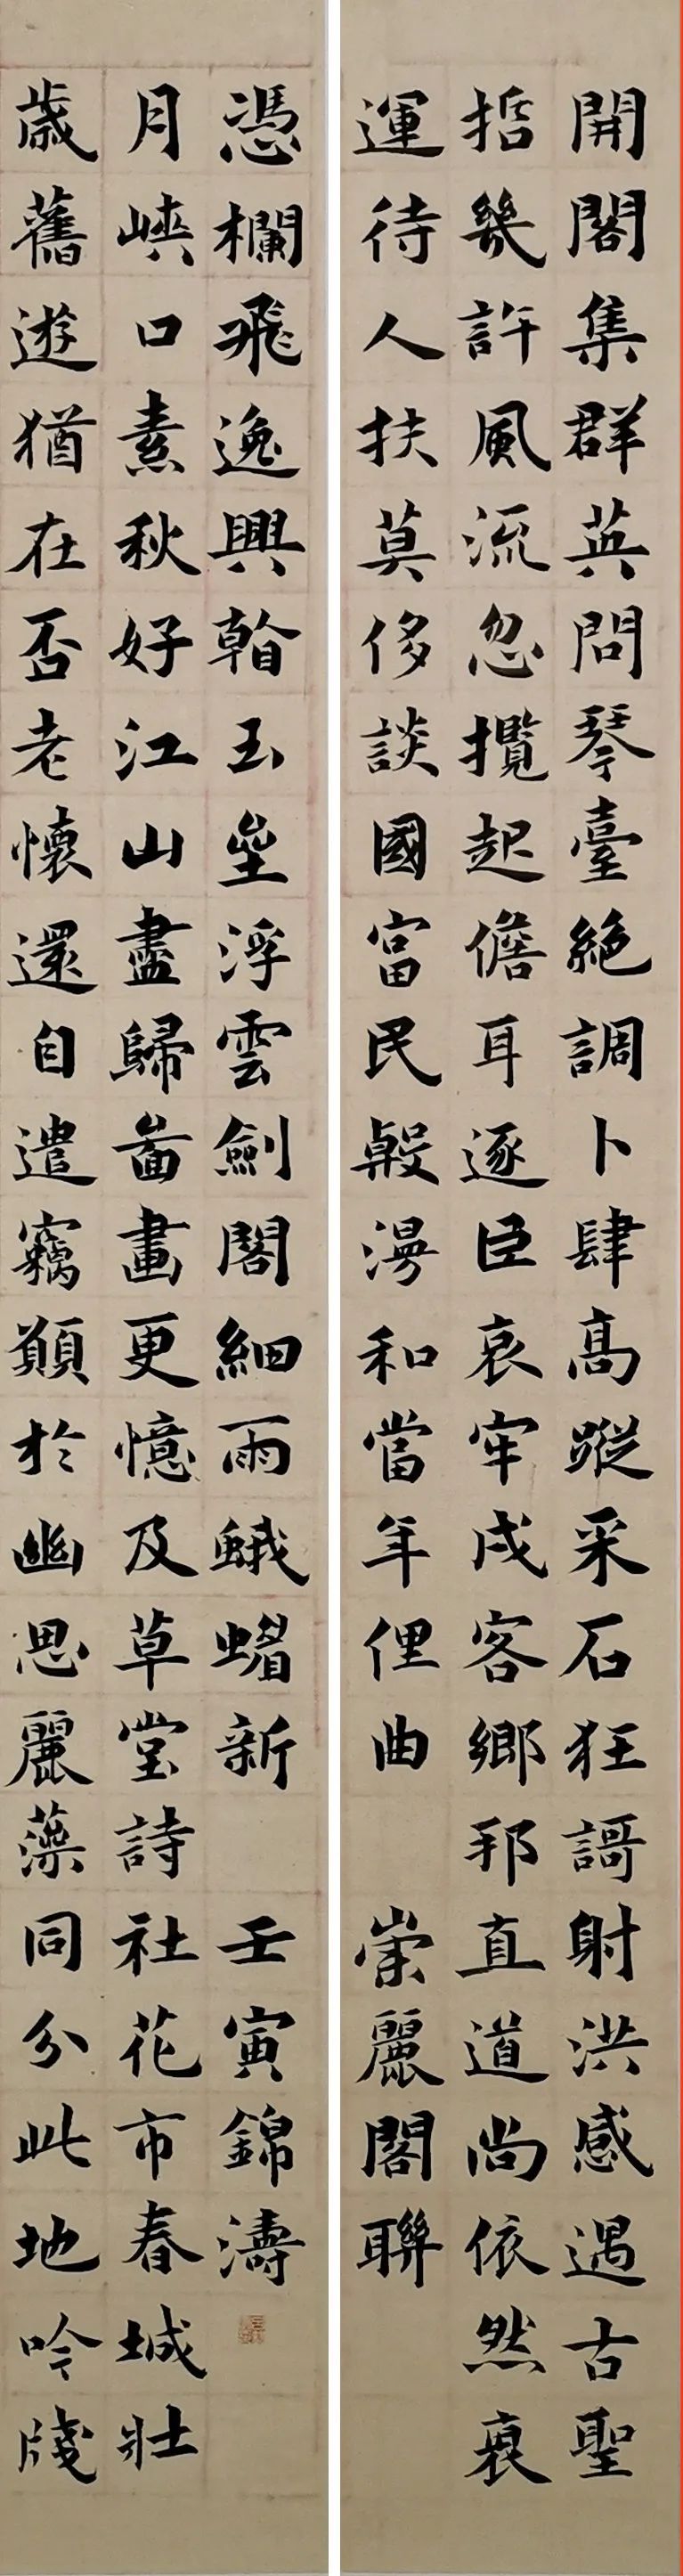 開閣集群英問琴臺絶調卜肆高蹤采石狂謌射洪感遇古聖
哲幾許風流忽攬起儋耳逐臣哀牢戍客鄉邦直道尚依然衰
運待人扶莫侈談國富民殷漫和當年俚曲
崇麗閣聯
憑欄飛逸興看玉壘浮雲劍閣細雨蛾蝞新
壬寅錦濤
月峽口素秋好江山盡歸啚畫更憶及草堂詩社花市春城壯
歲舊遊猶在否老懷還自遣竊願於幽思麗藻同分此地吟牋